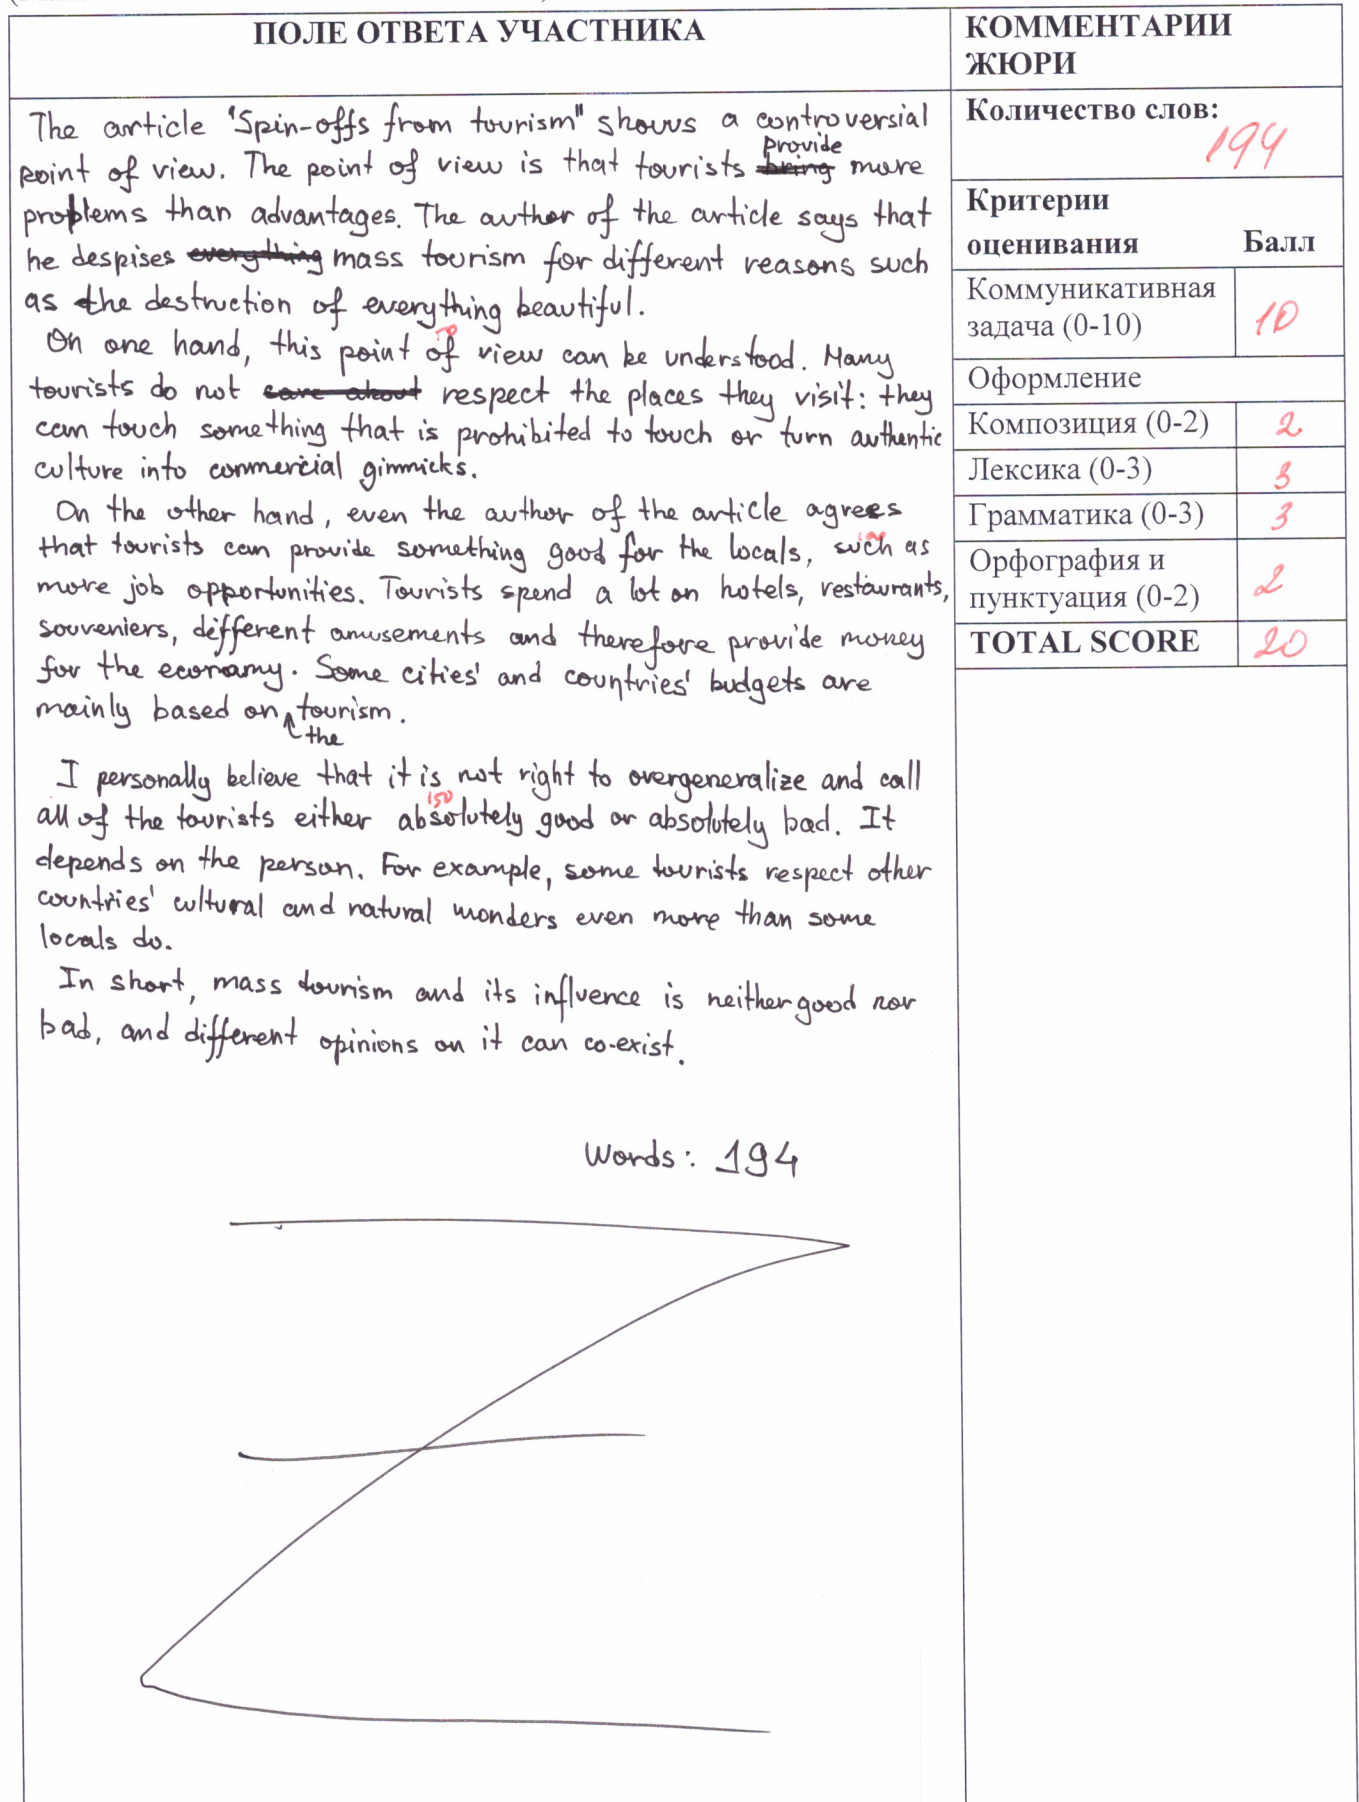 ПОЛЕ ОТВЕТА УЧАСТНИКА
The article "Spin-offs from tourism" shows a controversial
provide
point of view. The point of view is that tourists bring more
problems than advantages. The author of the article says that
he despises everything mass tourism for different reasons such
as the destruction of everything beautiful.
On one hand, this point of view can be understood. Many
tourists do not care about respect the places they visit: they
can touch something that is prohibited to touch or turn authentic
culture into commercial gimmicks.
On the other hand, even the author of the article agrees
that tourists can provide something good for the locals, such as
more job opportunities. Tourists spend a lot on hotels, restaurants,
souveniers, different amusements and therefore provide money
for the economy. Some cities' and countries' budgets are
mainly based on tourism.
the
I personally believe that it is not right to overgeneralize and call
150
all of the tourists either absolutely good or absolutely bad. It
depends on the person. For example, some tourists respect other
countries' cultural and natural wonders even more than some
locals do.
In short, mass tourism and its influence is neither good nor
bad, and different opinions on it can co-exist.
Words: 194
КОММЕНТАРИИ
ЖЮРИ
Количество слов:
194
Критерии
оценивания Балл
Коммуникативная
задача (0-10) 10
Оформление
Композиция (0-2) 2
Лексика (0-3) 3
Грамматика (0-3) 3
Орфография и
пунктуация (0-2) 2
TOTAL SCORE 20